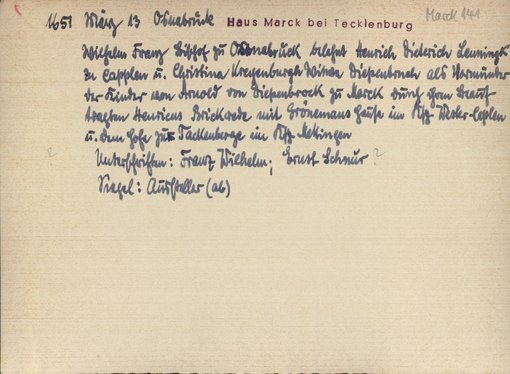 1651 März 13 Osnabrück Haus Marck bei Tecklenburg Marck 141
Wilhelm Franz Bischof zu Osnabrück belehnt Henrich Dieterich
zu Cappeln u. Christina Witwe Diepenbroch als Vormünder
der Kinder von Arnold von Diepenbrock zu Marck durch ihren
Henricus Brickwede mit Grönemans Hause im Ksp. Wester-Caplen
u. dem Hofe zur Tackenberge im Ksp. Mekingen
? Unterschriften: Franz Wilhelm; Ernst Schnur ?
Siegel: Aussteller (ab)